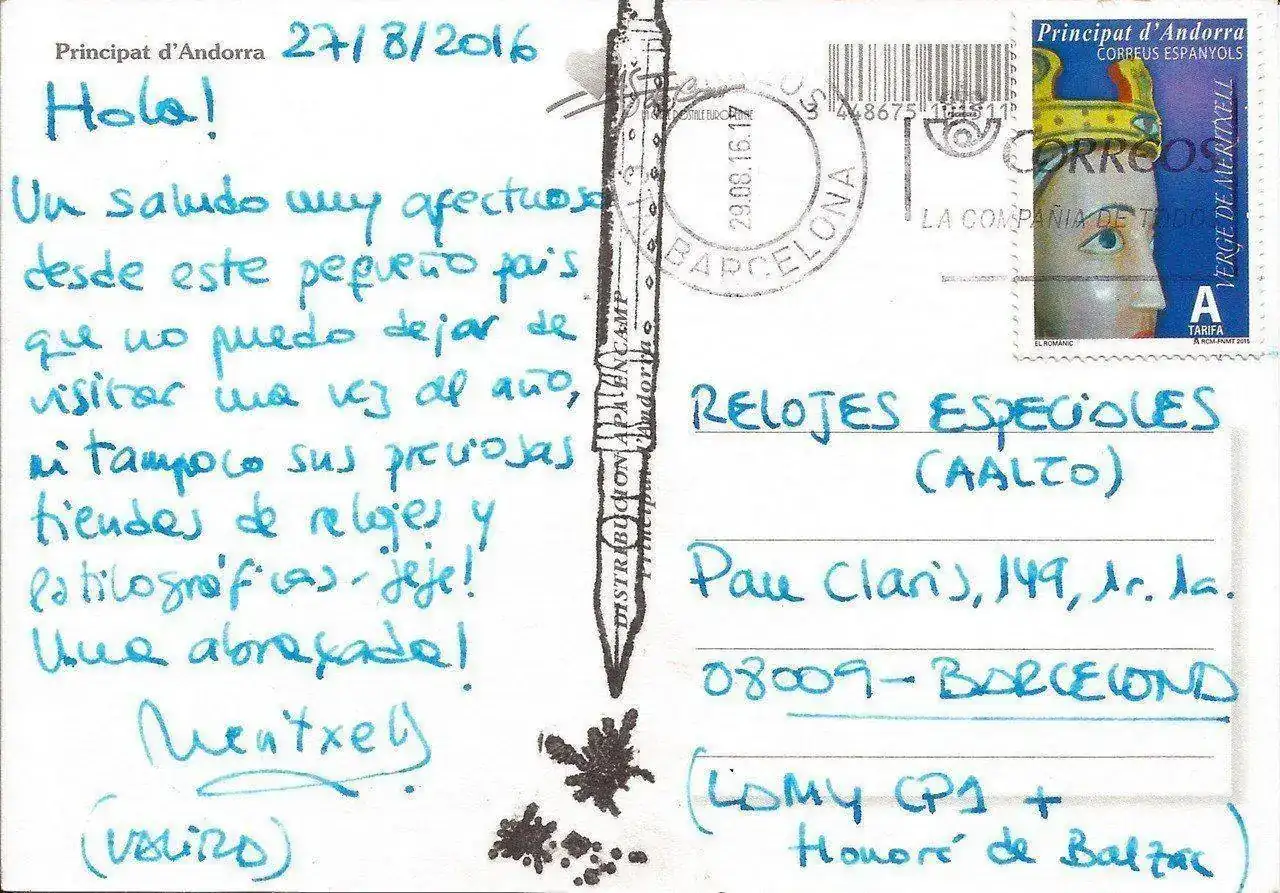 Principat d'Andorra 27/8/2016
Hola!
Un saludo muy afectuoso
desde este pequeño país
que no puedo dejar de
visitar una vez al año,
ni tampoco sus preciosas
tiendas de relojes y
estilográficas - jeje!
Una abraçada!
Meritxell
(VALIRA)
DISTRIBUCION APA ENCAMP
Principat d'Andorra
POSTALE EUROPÉENNE
3 448675 11
29.08.16.17
BARCELONA
CORREOS
LA COMPAÑIA DE TODOS
Principat d'Andorra
CORREUS ESPANYOLS
VERGE DE MERITXELL
A
TARIFA
EL ROMÀNIC
RCM-FNMT 2015
RELOJES ESPECIALES
(AALTO)
Pau Claris, 149, 1r. 1a.
08009 - BARCELONA
(LAMY CP1 +
Honoré de Balzac)